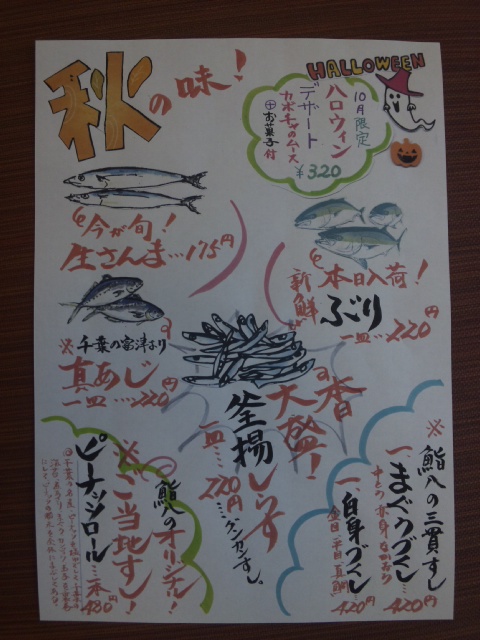 秋の味!
HALLOWEEN
10月限定
ハロウィン
デザート
カボチャのムース
⊕お菓子付
¥320
今が旬!
生さんま…175円
本日入荷!
新鮮
ぶり
一皿…220円
※千葉の富津より
真あじ
一皿…220円
大盛!
釜揚しらす
一皿…220円…グンカンすし。
※鮨八の三貫すし
一、まぐろづくし…420円
一、白身づくし…420円
金目 平目 真鯛
鮨八のオリジナル!
※ご当地すし!
ピーナッツロール…一本480円